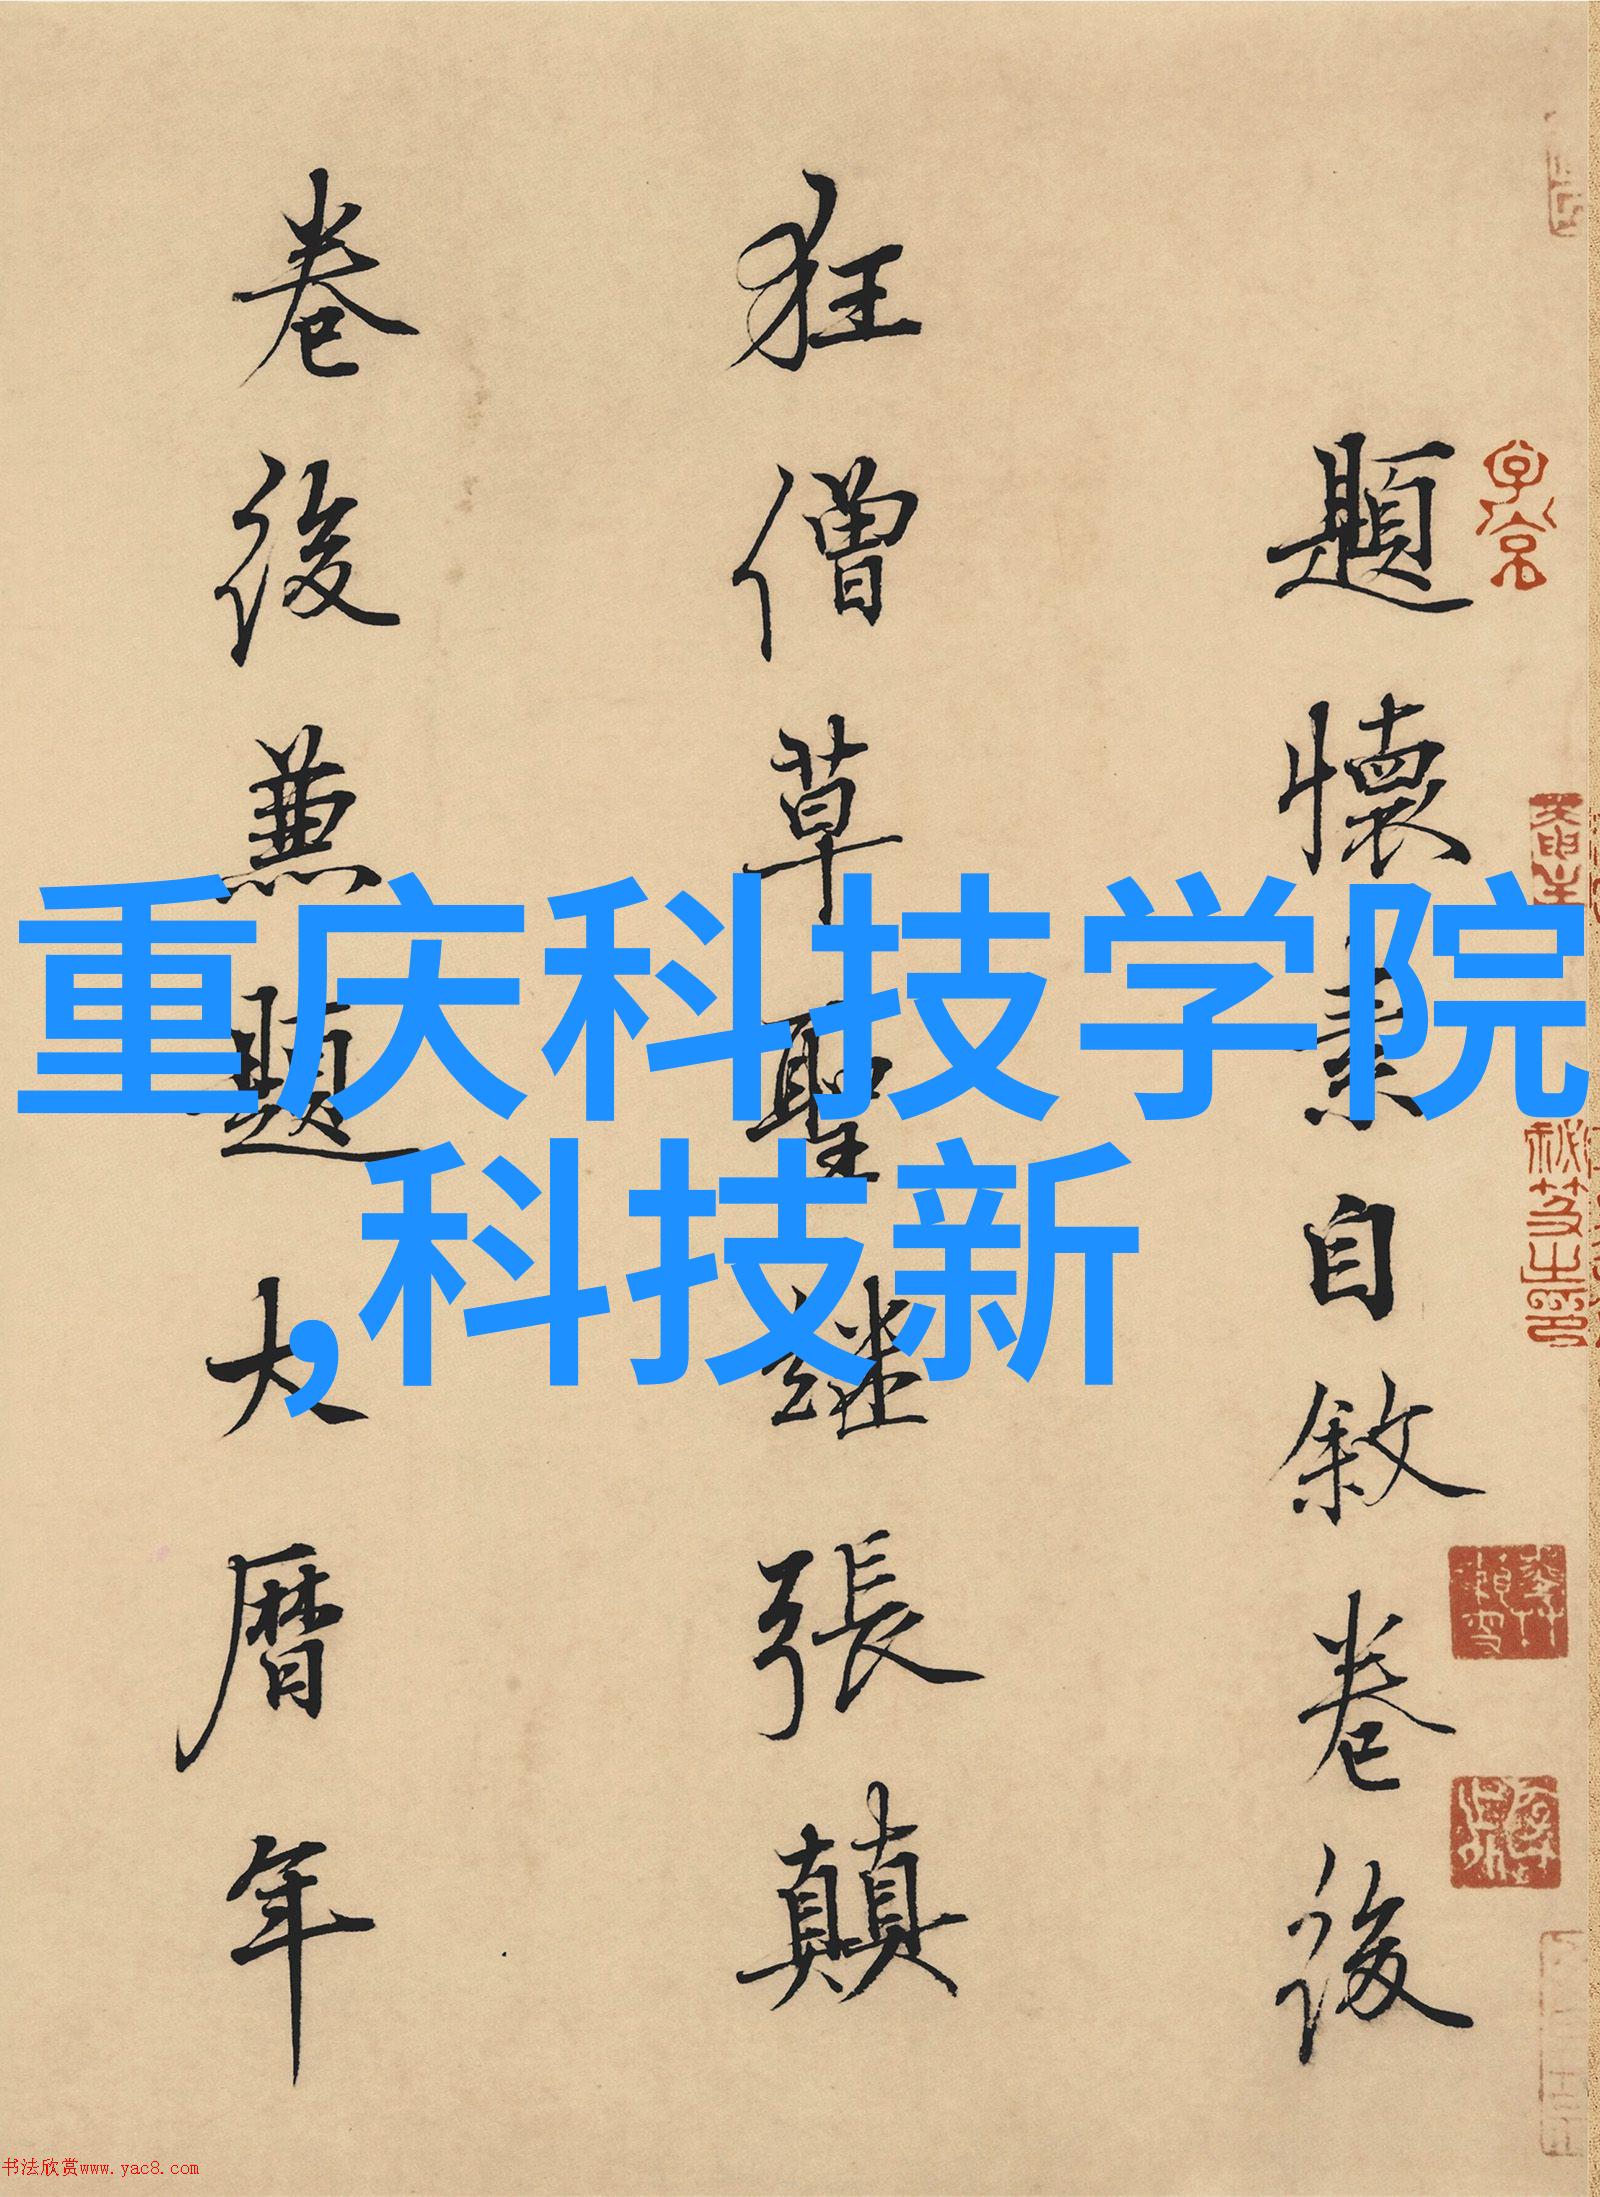 題懷素自敘卷後
狂僧草聖继張顛
卷後兼題大曆年
重庆科技学院
,科技新
书法欣赏www.yac8.com